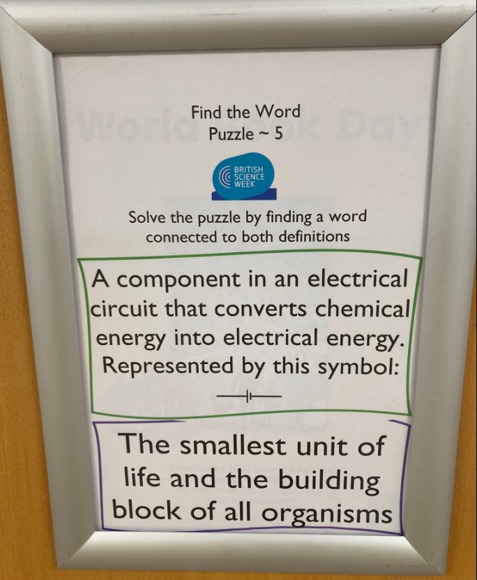 Find the Word
Puzzle ~ 5
BRITISH
SCIENCE
WEEK
Solve the puzzle by finding a word
connected to both definitions
A component in an electrical
circuit that converts chemical
energy into electrical energy.
Represented by this symbol:
The smallest unit of
life and the building
block of all organisms